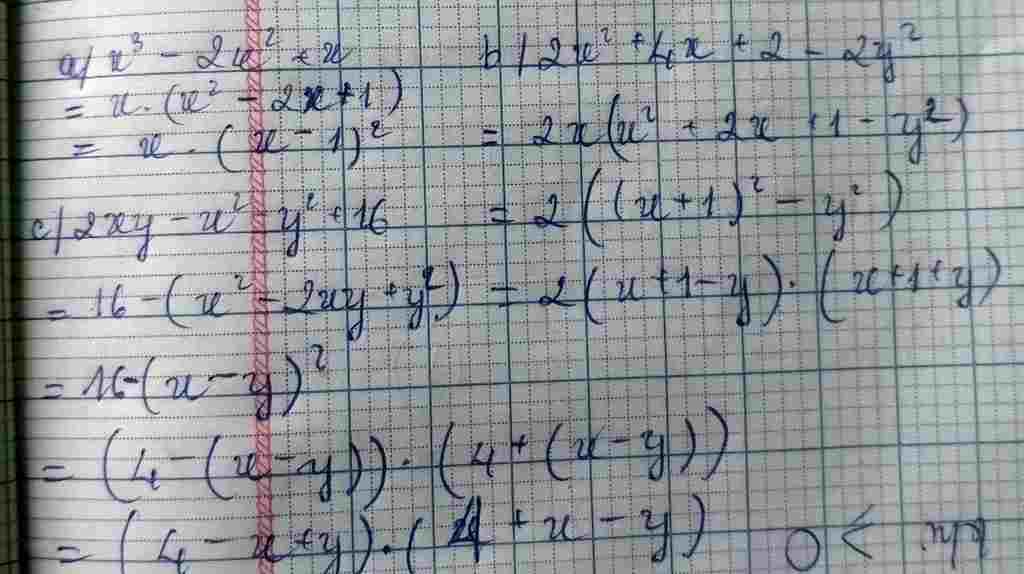 a) x³ - 2x² + x
= x.(x² - 2x+1)
= x.(x-1)²
b) 2x² + 4x + 2 - 2y²
= 2x(x² + 2x + 1 - y²)
= 2((x+1)² - y²)
= 2(x+1-y).(x+1+y)
c) 2xy - x² - y² + 16
= 16 - (x² - 2xy + y²)
= 16-(x-y)²
= (4-(x-y)).(4+(x-y))
= (4-x+y).(4+x-y)